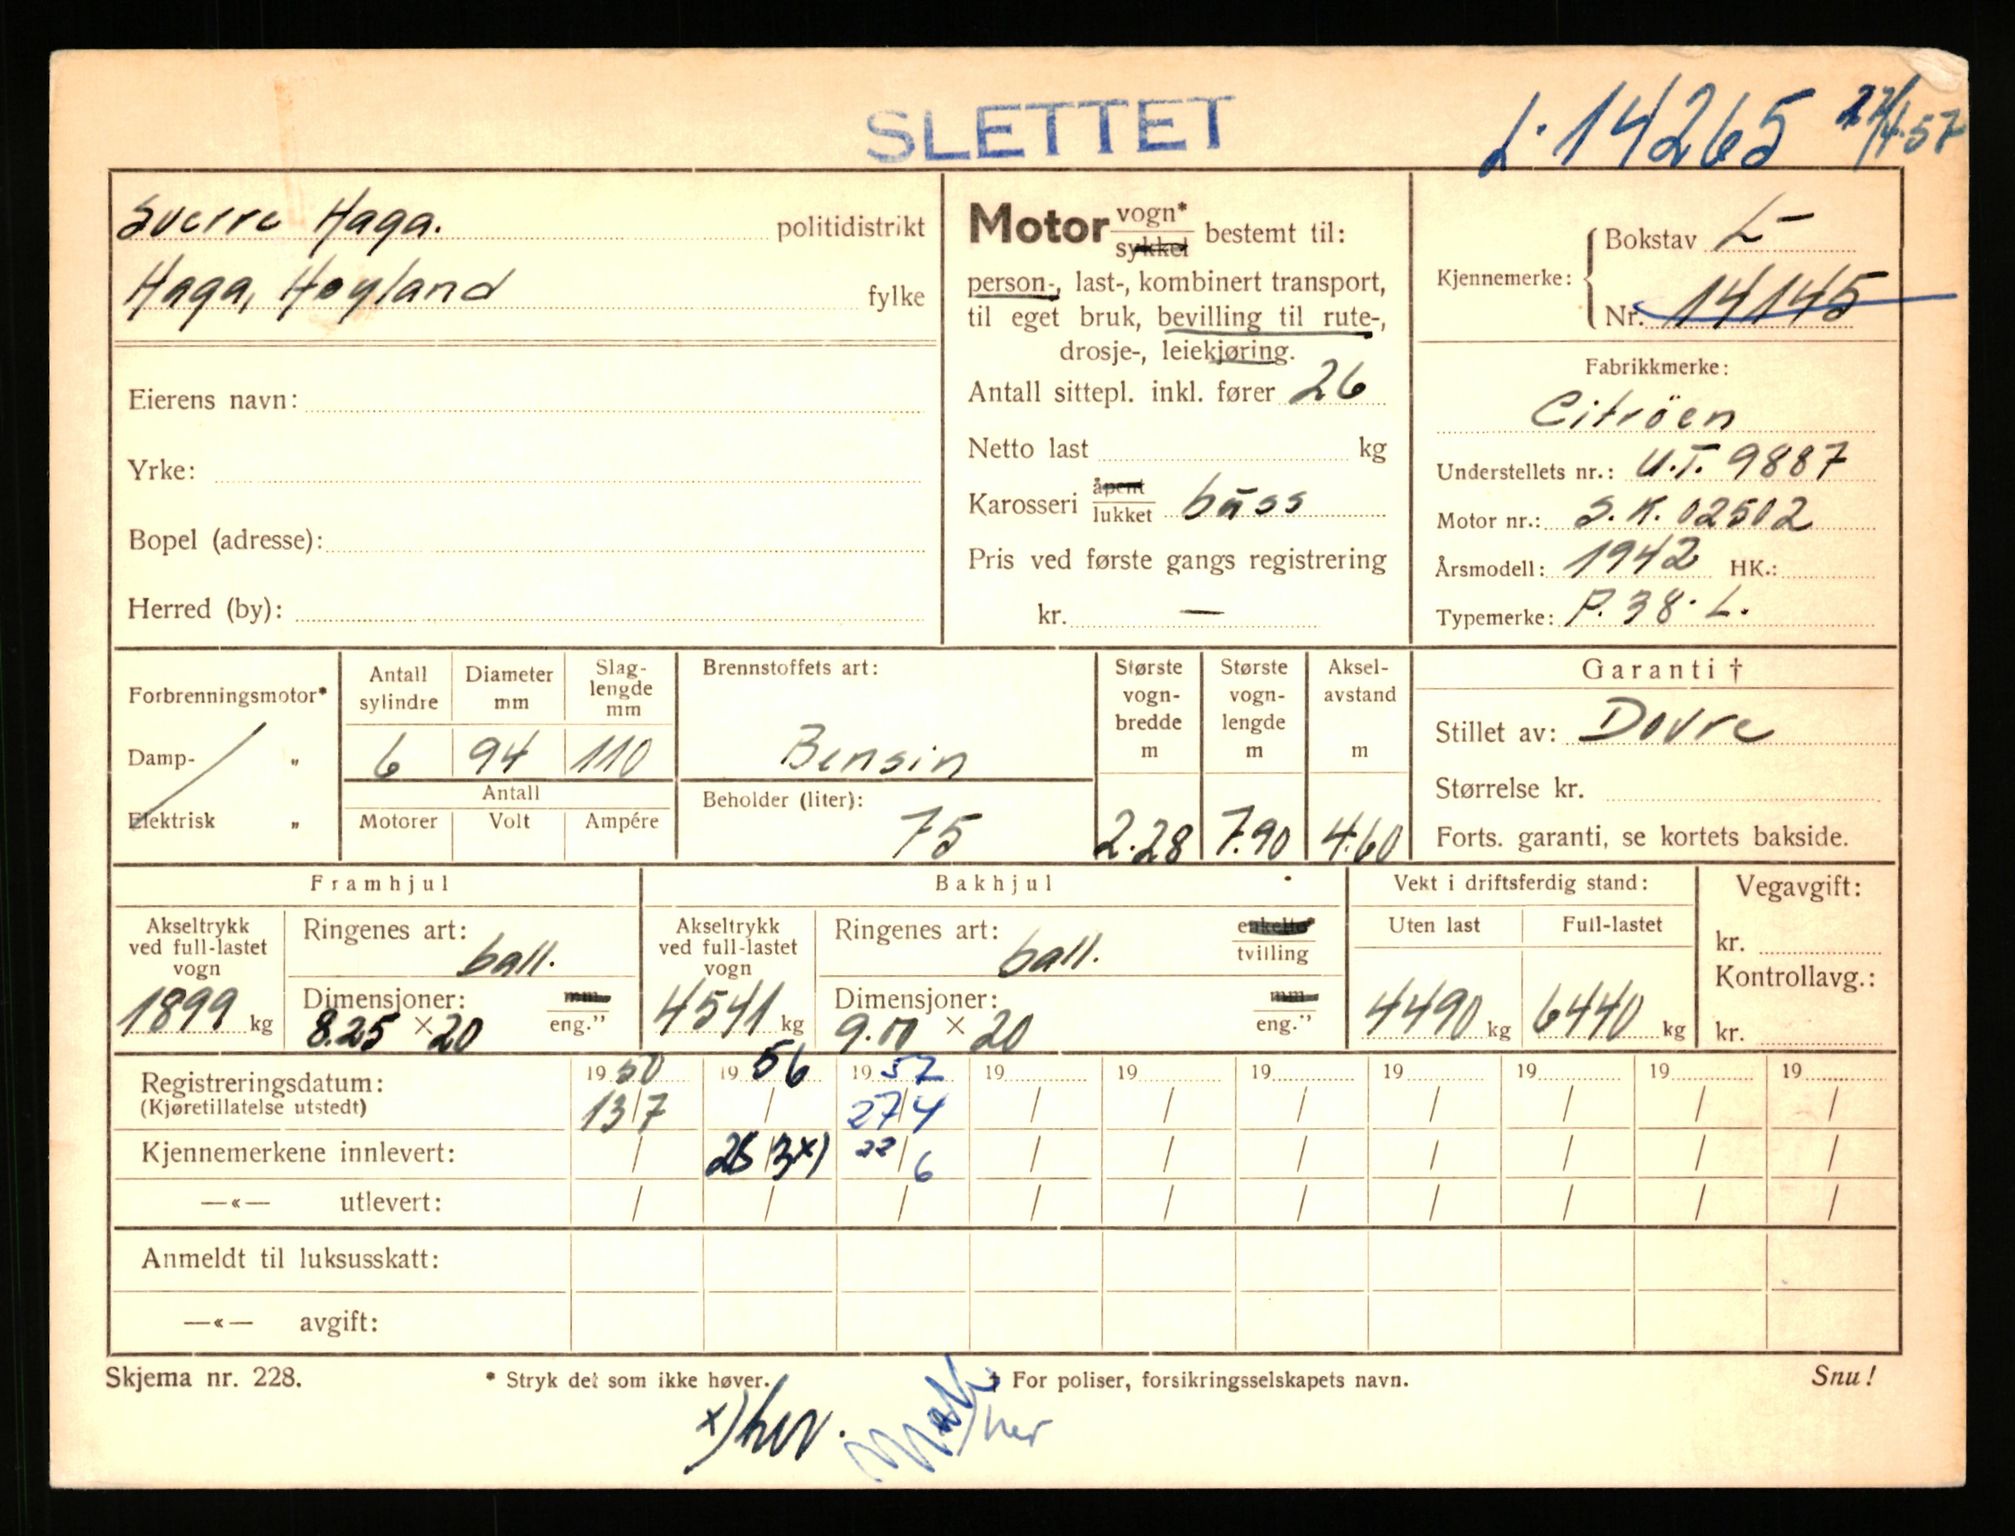 SLETTET
L.14265 27/4.57
Sverre Haga. politidistrikt
Haga, Høyland fylke
Eierens navn:
Yrke:
Bopel (adresse):
Herred (by):
Motor vogn* bestemt til:
sykkel
person-, last-, kombinert transport,
til eget bruk, bevilling til rute-,
drosje-, leiekjøring.
Antall sittepl. inkl. fører 26
Netto last kg
Karosseri åpent
lukket buss
Pris ved første gangs registrering
kr. —
Kjennemerke: Bokstav L-
Nr. 14145
Fabrikkmerke:
Citröen
Understellets nr.: U.T. 9887
Motor nr.: S.K. 02502
Årsmodell: 1942 HK.:
Typemerke: P. 38. L.
Forbrenningsmotor*
Damp- "
Elektrisk "
Antall sylindre Diameter mm Slag-lengde mm
6 94 110
Antall
Motorer Volt Ampére
Brennstoffets art:
Bensin
Beholder (liter):
75
Største vogn-bredde m
2.28
Største vogn-lengde m
7.90
Aksel-avstand m
4.60
Garanti †
Stillet av: Dovre
Størrelse kr.
Forts. garanti, se kortets bakside.
Framhjul
Akseltrykk
ved full-lastet
vogn
1899 kg
Ringenes art:
ball.
Dimensjoner: mm
8.25 × 20 eng."
Bakhjul
Akseltrykk
ved full-lastet
vogn
4541 kg
Ringenes art: enkelte*
ball. tvilling
Dimensjoner: mm
9.00 × 20 eng."
Vekt i driftsferdig stand:
Uten last Full-lastet
4490 kg 6440 kg
Vegavgift:
kr.
Kontrollavg.:
kr.
Registreringsdatum: 19 50 19 56 19 57 19 19 19 19 19 19 19
(Kjøretillatelse utstedt) 13/7 / 27/4 / / / / / / /
Kjennemerkene innlevert: / 26/3 x) 22/6 / / / / / / /
—«— utlevert: / / / / / / / / / /
Anmeldt til luksusskatt:
—«— avgift:
Skjema nr. 228. * Stryk det som ikke høver. † For poliser, forsikringsselskapets navn. Snu!
x) her.
her